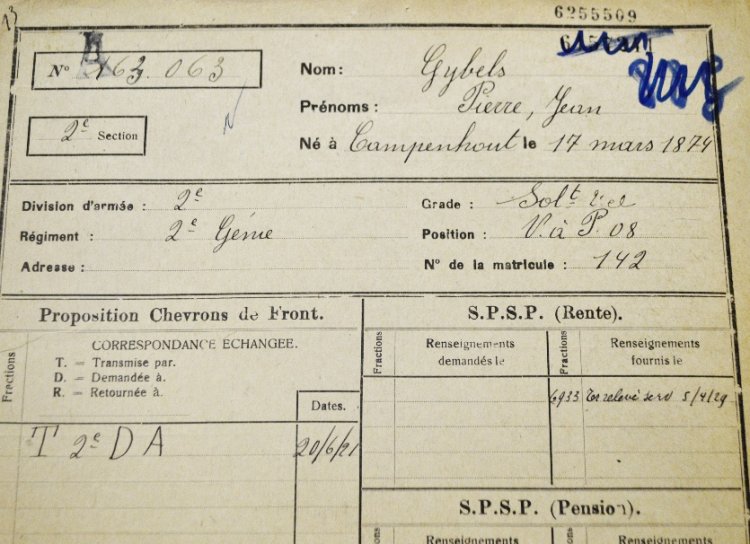 13
6255509
N° 163.063
2e Section
Nom: Gybels
Prénoms: Pierre, Jean
Né à Campenhout le 17 mars 1874
Division d'armée : 2e
Régiment : 2e Génie
Adresse :
Grade : Solt
Position : V. à P. 08
N° de la matricule : 142
Proposition Chevrons de Front.
Fractions
CORRESPONDANCE ÉCHANGÉE.
T. = Transmise par.
D. = Demandée à.
R. = Retournée à.
Dates.
T 2e D A 20/6/21
S.P.S.P. (Rente).
Fractions
Renseignements
demandés le
Fractions
Renseignements
fournis le
6933 relevé 5/4/29
S.P.S.P. (Pension).
Renseignements
Renseignements